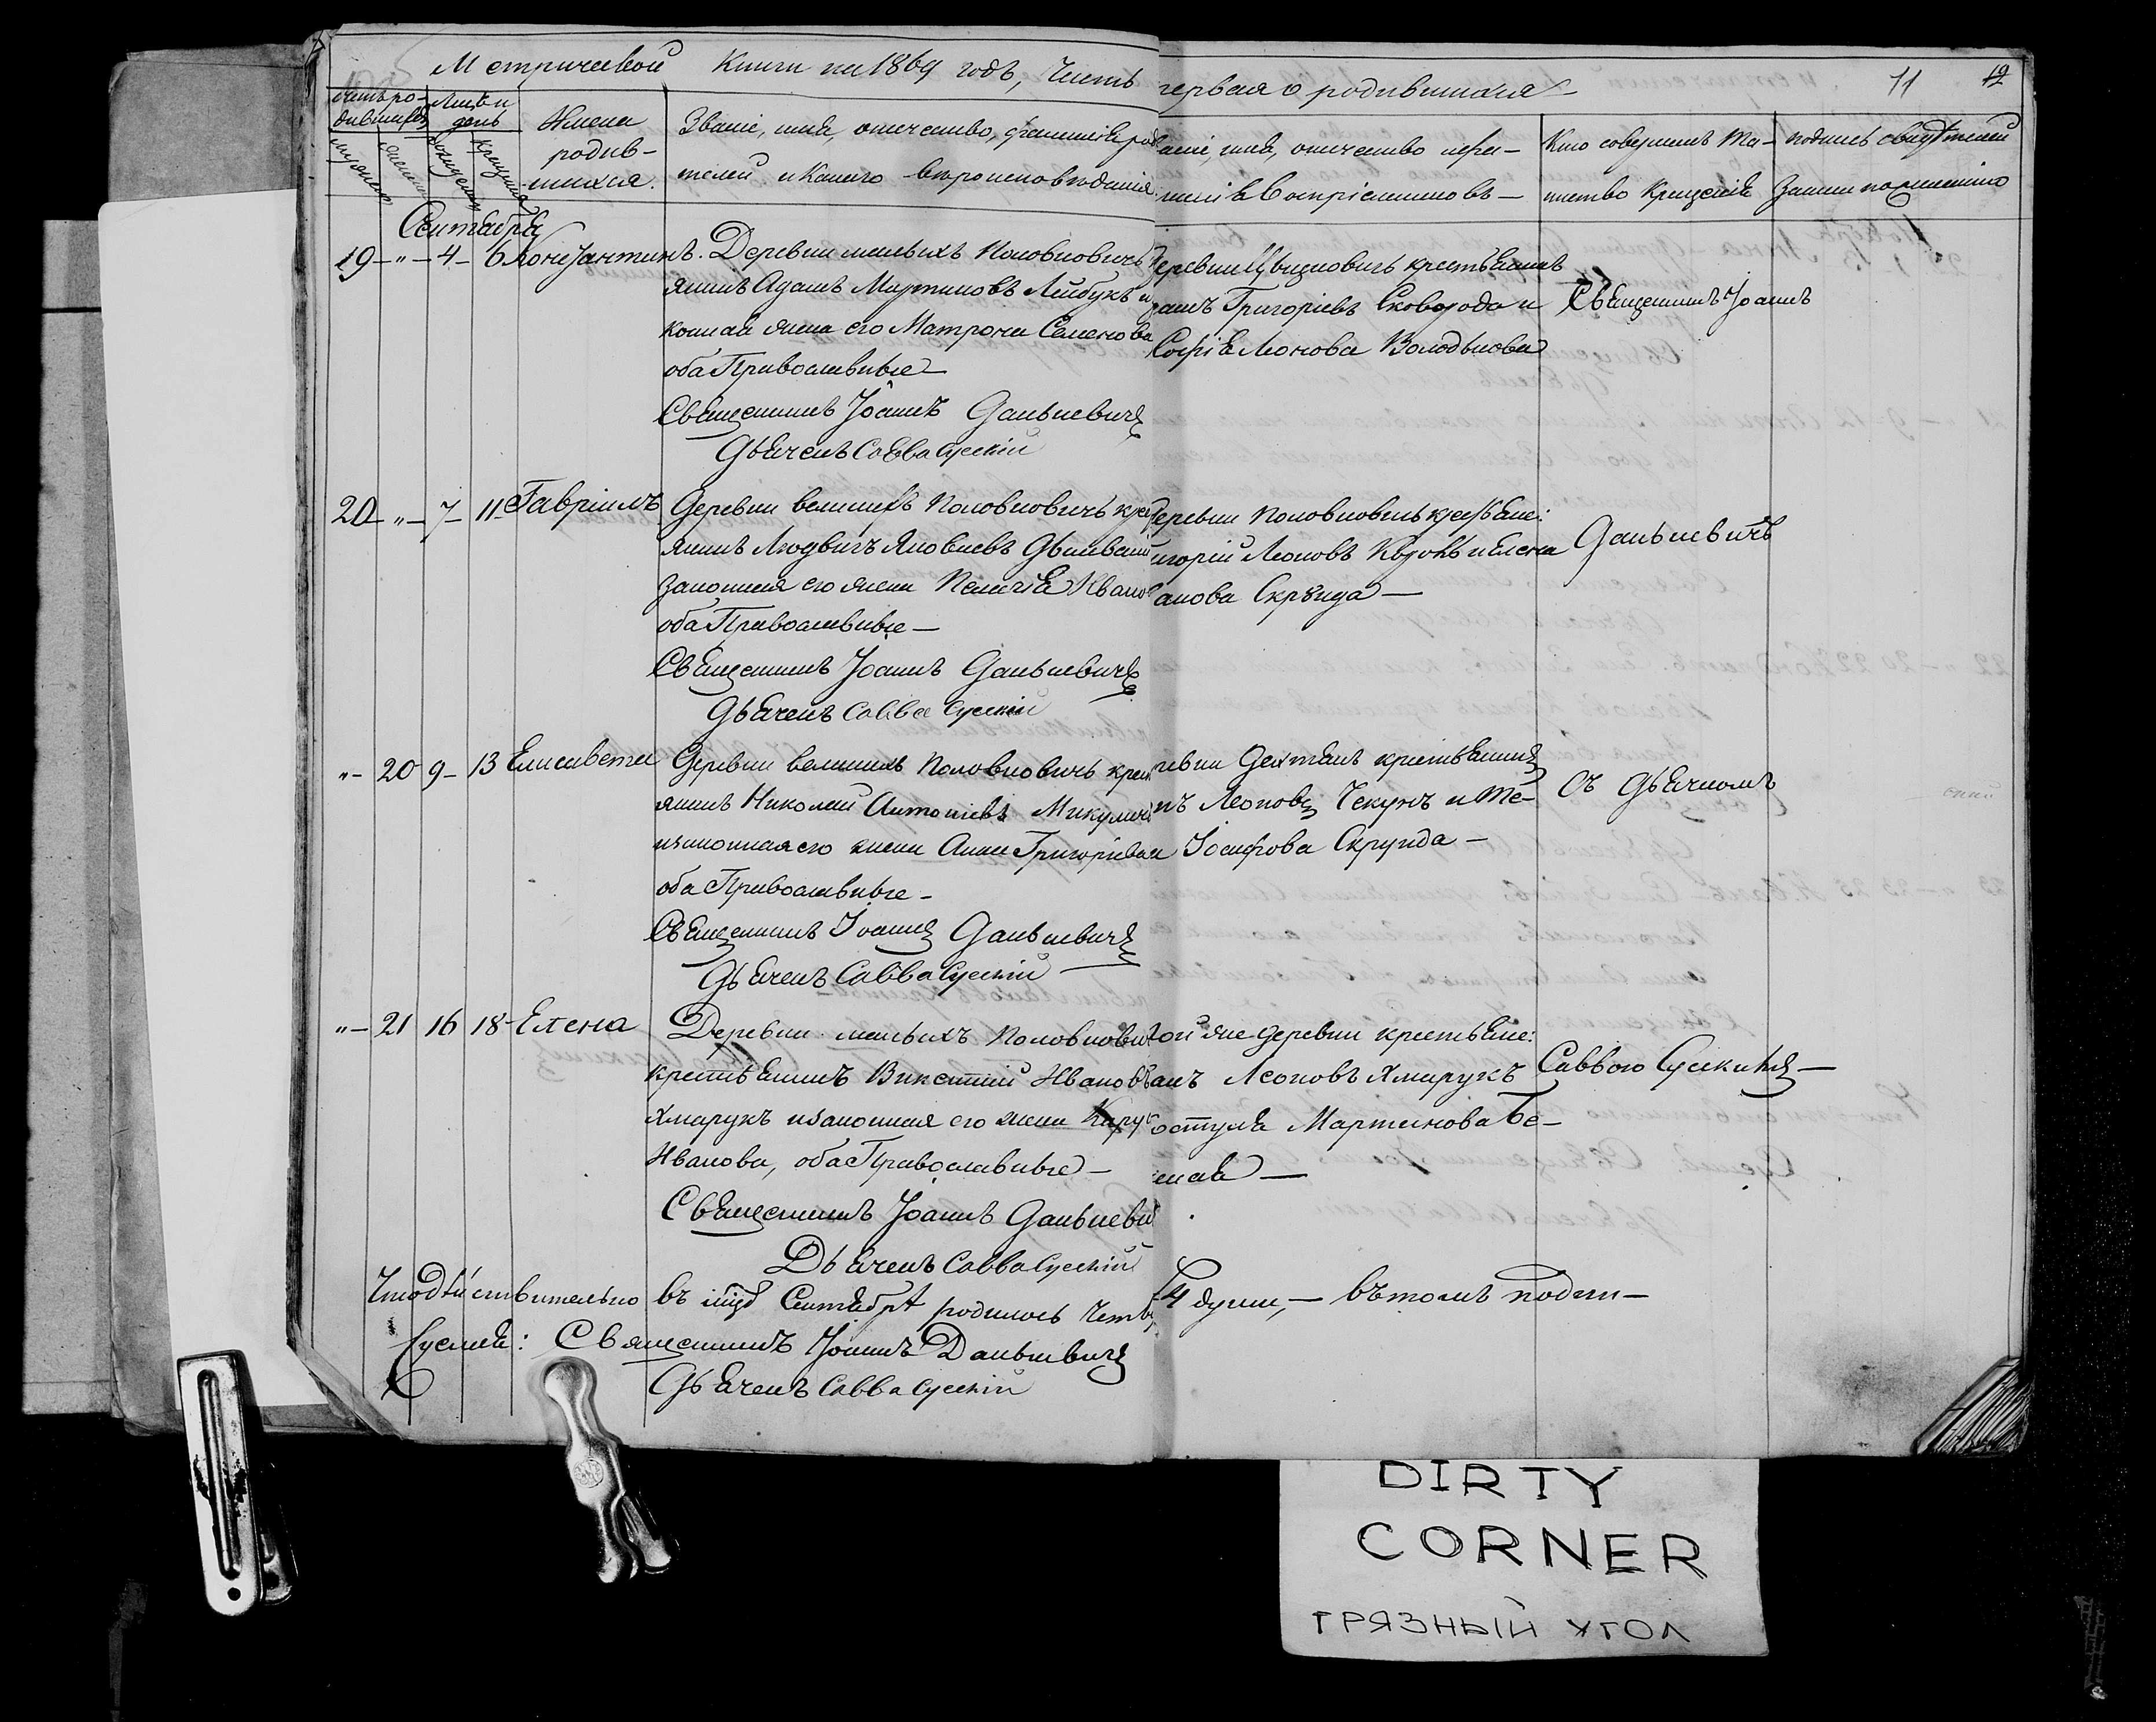 Метрической Книги на 1869 годъ, Часть первая о родившихся
11 12
Счетъ ро-
дившихся
Мѣсяцъ и
день
Имена
родив-
шихся.
Званіе, имя, отчество, фамилія роди
телей и какого вѣроисповѣданія.
Званіе, имя, отчество и фа-
милія восприемниковъ —
Кто совершилъ Та-
инство Крещенія
Подпись свидѣтелей
записи по желанію
мужеск.
женск.
рожденія
крещенія
Сентября
19 — „ — 4 — 6 Константинъ.
Деревни малыхъ Половковичъ
янинъ Адамъ Мартиновъ Лейбукъ и
конная жена его Матрона Семенова
оба Православные —
Священникъ Іоаннъ Данькевичъ
Дьячекъ Савва Сускій
Деревни крестьянинъ
Григоріевъ Сковорода и
Софія Леонова Володькова
Священникъ Іоаннъ
20 — „ — 7 — 11 Гавріилъ
Деревни великихъ Половковичъ крес
янинъ Людвигъ Яковлевъ
законная его жена Иванов
оба Православные —
Священникъ Іоаннъ Данькевичъ
Дьячекъ Савва Сускій
Деревни Половковичъ крестьяне:
игорій Леоновъ и Елена
анова Скрунда —
Данькевичъ
„ — 20 9 — 13 Елисавета
Деревни великихъ Половковичъ крест
янинъ Николай Антоніевъ Микулич
и законная его жена Анна Григоріева
оба Православные —
Священникъ Іоаннъ Данькевичъ
Дьячекъ Савва Сускій
крестьянинъ
нъ Леоновъ Чекунъ и Те-
Іосифова Скрунда —
съ дьячкомъ
„ — 21 16 18 — Елена
Деревни малыхъ Половкови
крестьянинъ Викентій Ивановъ
Хмарукъ и законная его жена
Иванова, оба Православные —
Священникъ Іоаннъ Данькевич
Дьячекъ Савва Сускій
той же деревни крестьяне:
анъ Леоновъ Хмарукъ
остуля Мартинова Бе-
Саввою Сускимъ —
Что дѣйствительно въ мцѣ Сентябрѣ родилось четы 4 души, — въ томъ подпи-
суемся: Священникъ Іоаннъ Данькевичъ
Дьячекъ Савва Сускій
DIRTY
CORNER
ГРЯЗНЫЙ УГОЛ